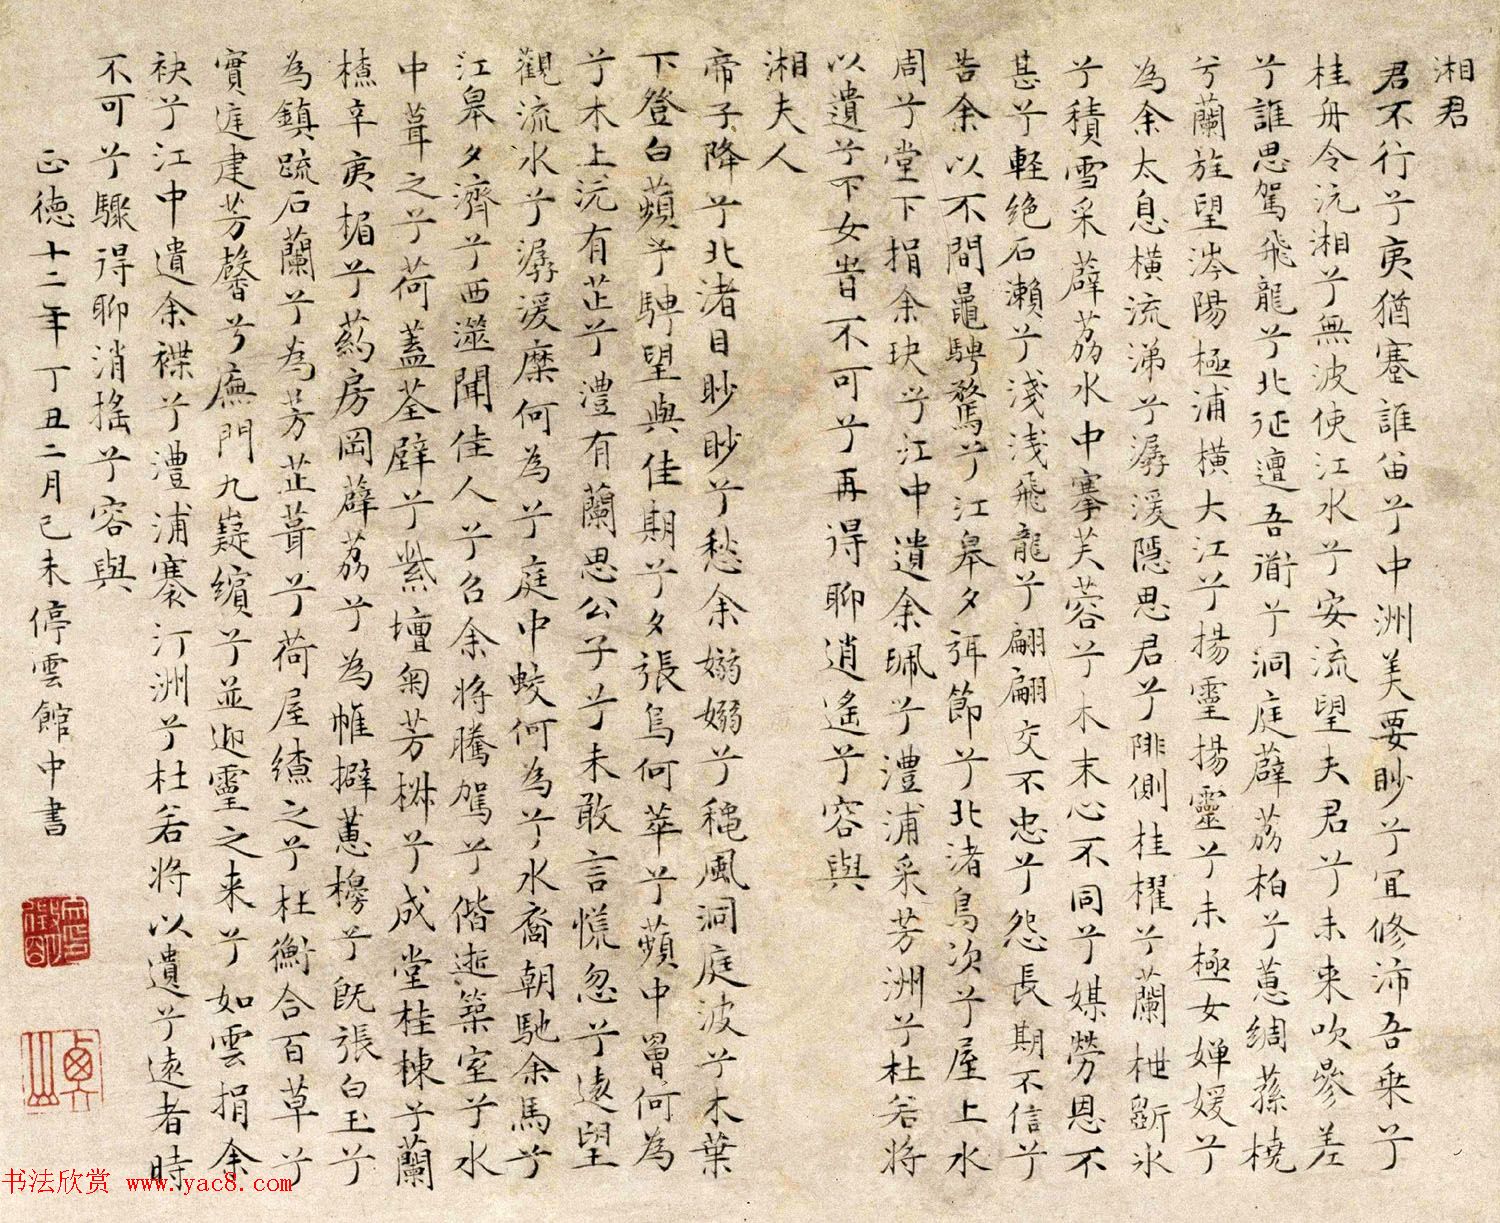 湘君
君不行兮夷猶蹇誰留兮中洲美要眇兮宜修沛吾乗兮
桂舟令沅湘兮無波使江水兮安流望夫君兮未来吹參差
兮誰思駕飛龍兮北征邅吾道兮洞庭薜荔柏兮蕙綢蓀橈
兮蘭旌望涔陽極浦橫大江兮揚靈揚靈兮未極女嬋媛兮
為余太息橫流涕兮潺湲隱思君兮陫側桂櫂兮蘭枻斷氷
兮積雪采薜荔水中搴芙蓉兮木末心不同兮媒勞恩不
甚兮軽絕石瀨兮淺淺飛龍兮翩翩交不忠兮怨長期不信兮
告余以不閒鼂騁騖兮江皋夕弭節兮北渚鳥次兮屋上水
周兮堂下捐余玦兮江中遺余珮兮澧浦采芳洲兮杜若將
以遺兮下女旹不可兮再得聊逍遙兮容與
湘夫人
帝子降兮北渚目眇眇兮愁余嫋嫋兮秋風洞庭波兮木葉
下登白蘋兮騁望與佳期兮夕張鳥何萃兮蘋中罾何為
兮木上沅有芷兮澧有蘭思公子兮未敢言慌忽兮遠望
觀流水兮潺湲麋何為兮庭中蛟何為兮水裔朝馳余馬兮
江皋夕濟兮西澨聞佳人兮召余将騰駕兮偕逝築室兮水
中葺之兮荷蓋荃壁兮紫壇匊芳椒兮成堂桂棟兮蘭
橑辛夷楣兮葯房罔薜荔兮為帷擗蕙櫋兮既張白玉兮
為鎮疏石蘭兮為芳芷葺兮荷屋繚之兮杜衡合百草兮
實庭建芳馨兮廡門九嶷繽兮並迎靈之来兮如雲捐余
袂兮江中遺余褋兮澧浦搴汀洲兮杜若将以遺兮遠者時
不可兮驟得聊消搖兮容與
正德十二年丁丑二月己未停雲館中書
書法欣赏 www.yac8.com